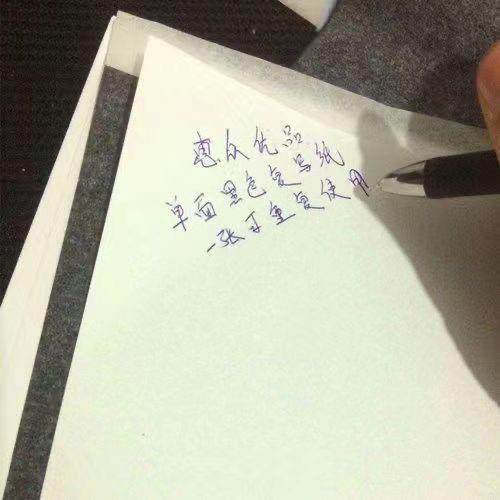 惠众优品
单面黑色复写纸
一张可重复使用